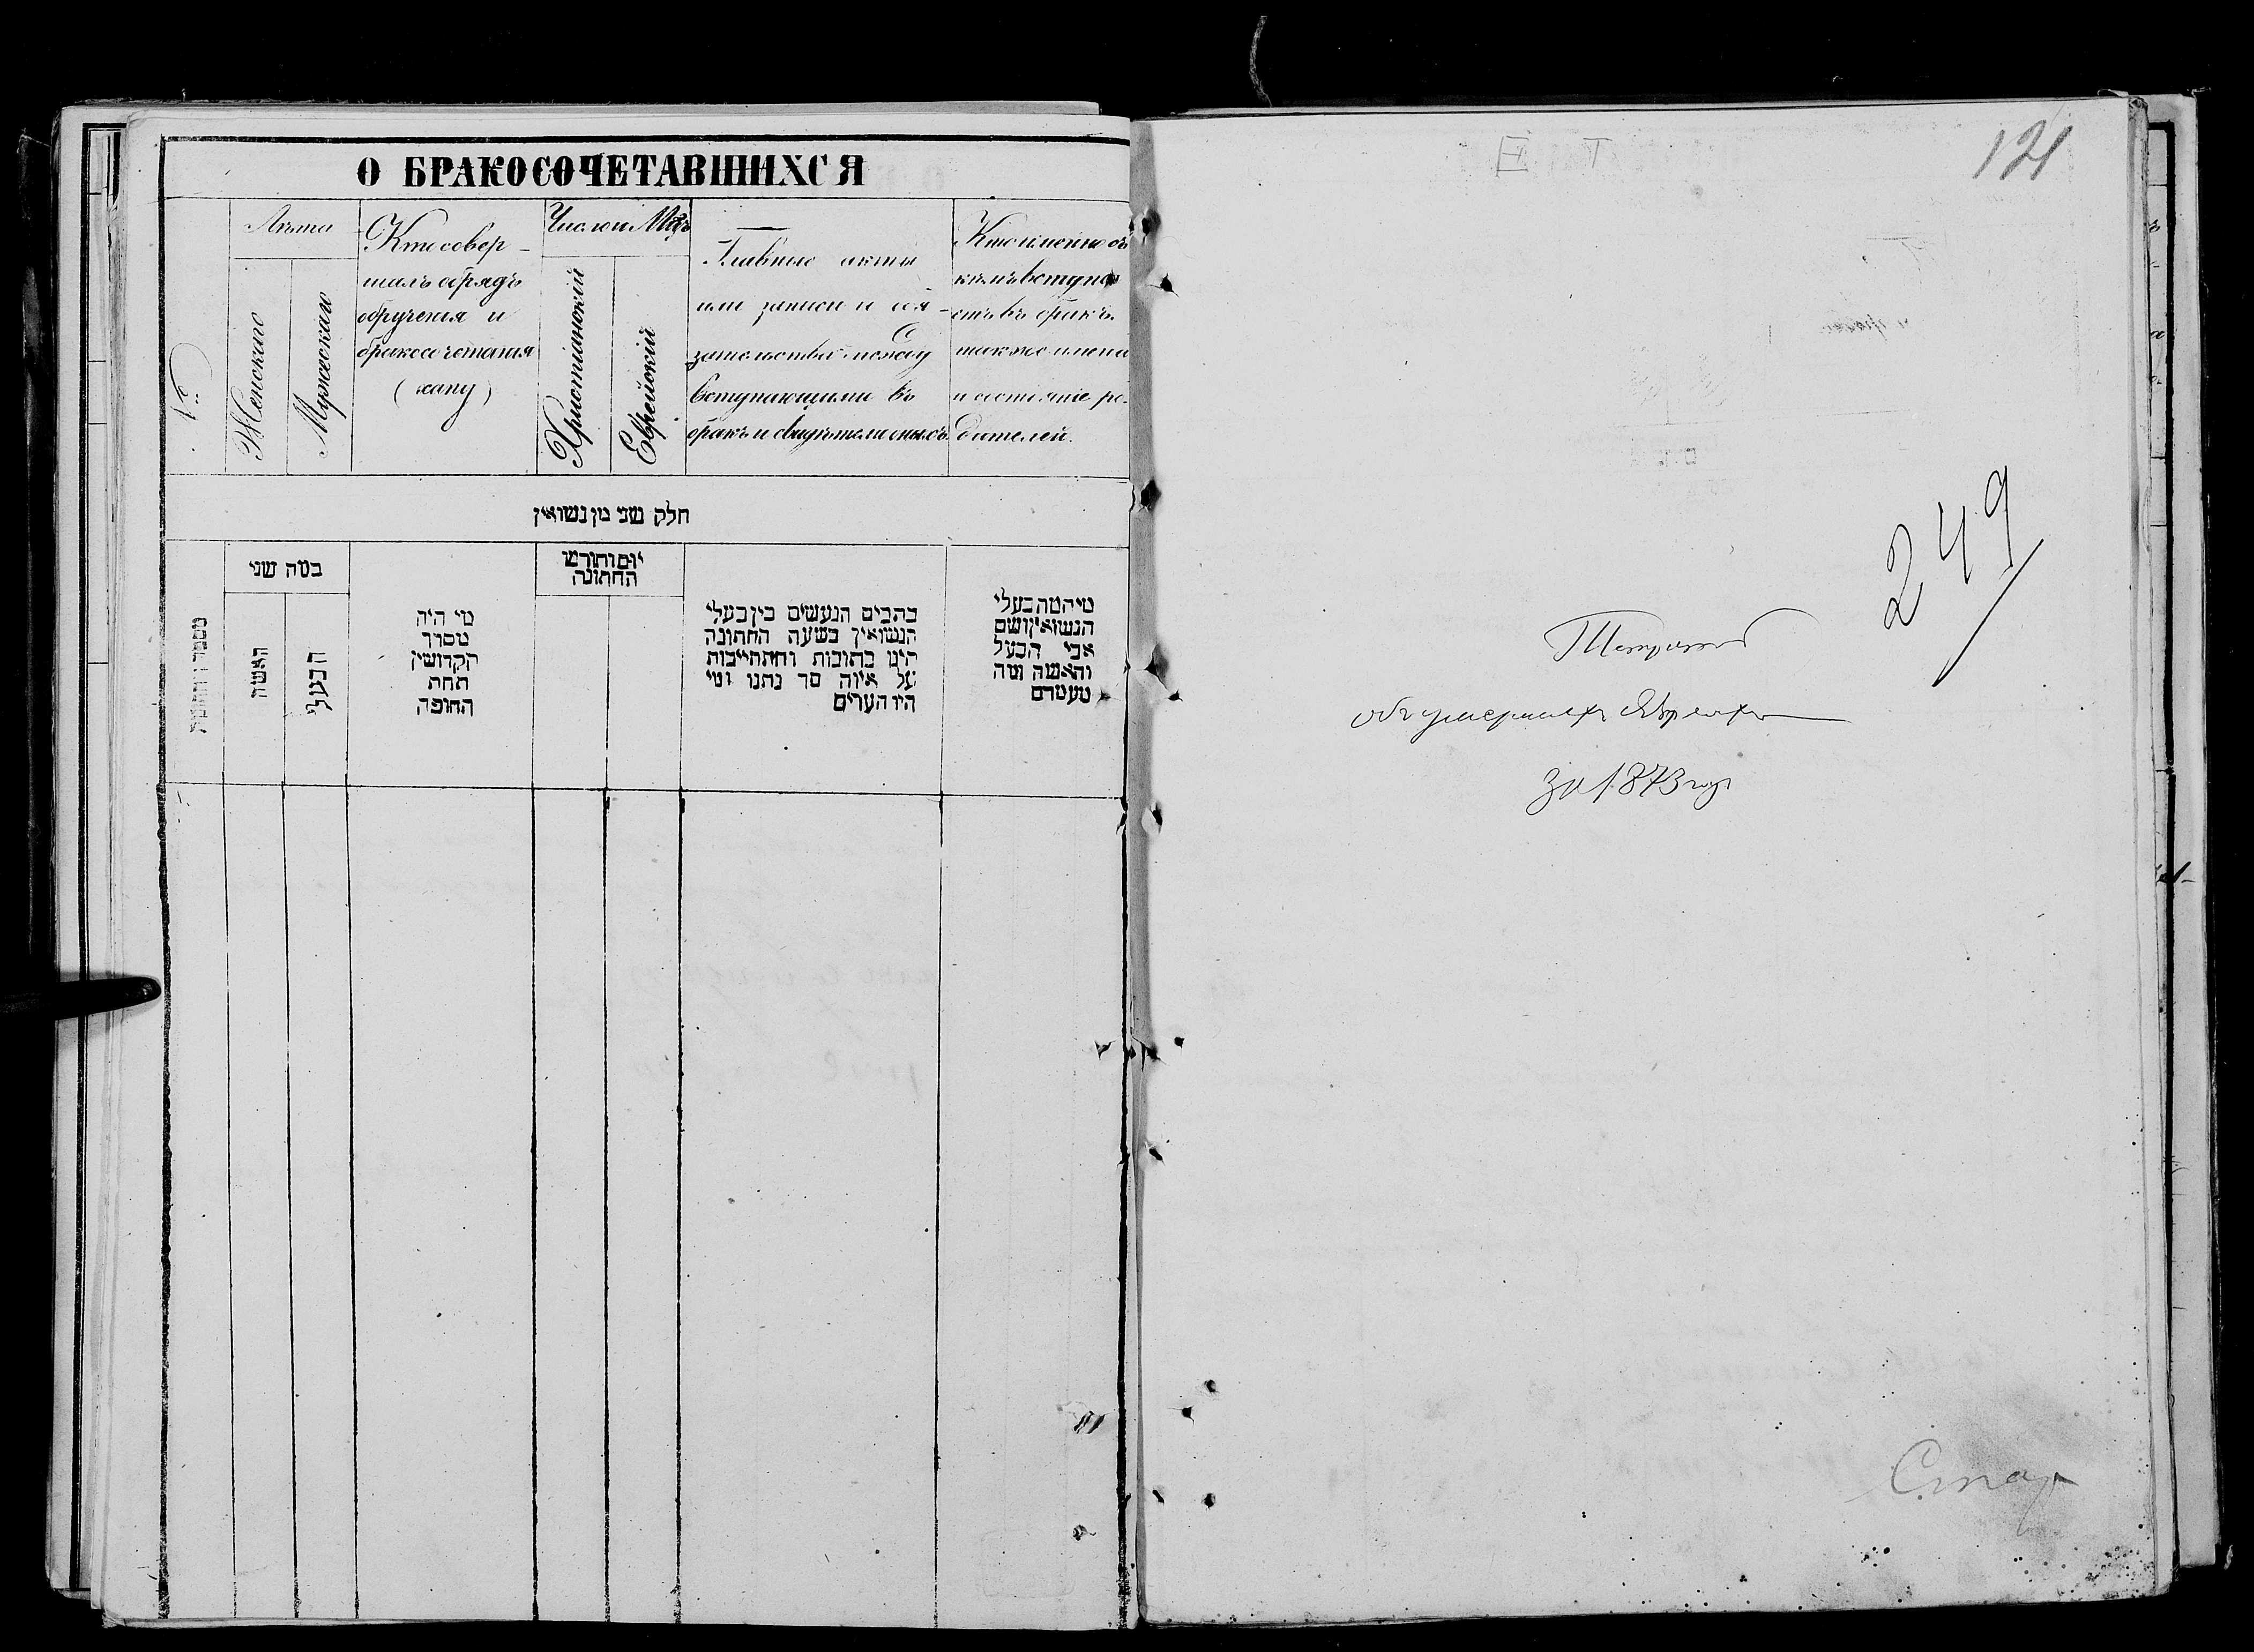 О БРАКОСОЧЕТАВШИХСЯ
№
Лѣта
Женскаго
Мужескаго
Кто совер-
шалъ обрядъ
обрученія и
бракосочетанія
(хупу)
Число и Мѣз
Христіанскій
Еврейскій
Главные акты
или записи и обя-
зательства между
вступающими въ
бракъ и свидѣтели оныхъ
Кто именно съ
кѣмъ вступа
етъ въ бракъ
также имена
и состояніе ро-
дителей.
חלק שני מן נשואין
מספר החתונות
כמה שני
האשה
הבעל
מי היה
מסדר
הקדושין
תחת
החופה
יום וחודש
החתונה
כתבים הנעשים בין בעלי
הנשואין בשעה החתונה
היינו כתובות והתחייבות
על איזה סך נתנו ומי
היו העדים
מיהמה בעלי
הנשואין ושם
אבי הבעל
והאשה ומה
מעמדם
121
249
Тетрадь
объ умершихъ Евреяхъ
за 1873 годъ
Стар